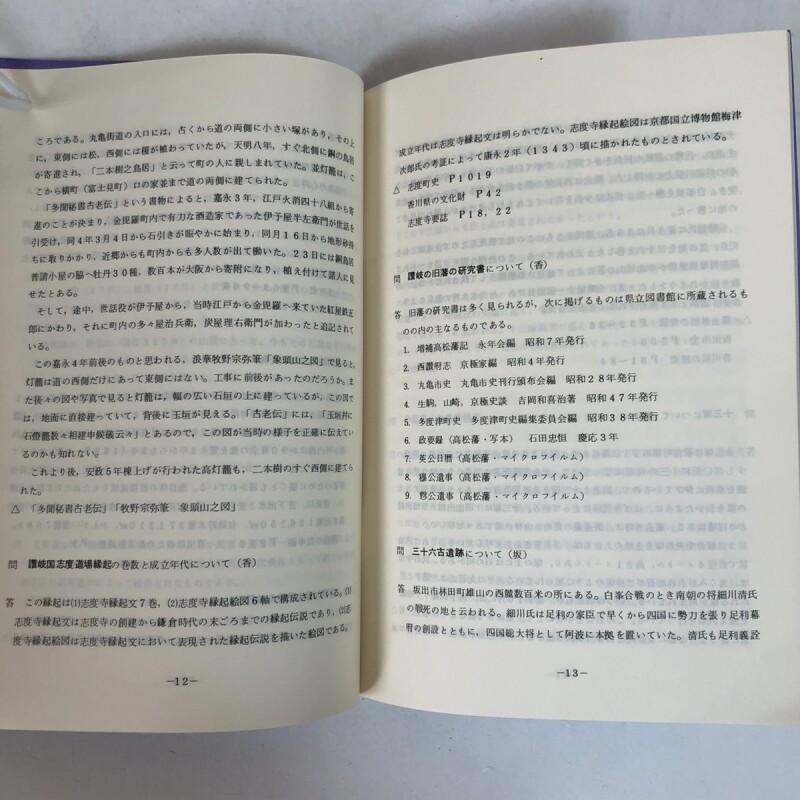 ころである。丸亀街道の入口には，古くから道の両側に小さい塚があり，その上
に，東側には松，西側には榎が植わっていたが，天明八年，すぐ北側に銅の鳥居
が寄進され，「二本樹之鳥居」と云って町の人に親しまれていた。並灯籠は，こ
こから横町（富士見町）口の家並まで道の両側に建てられた。
「多聞秘書古老伝」という書物によると，嘉永３年，江戸火消四十八組から寄
進のことが決まり，金毘羅町内で有力な酒造家であった伊予屋半左衛門が世話を
引受け，同４年３月４日から石引きが賑やかに始まり，同月１６日から地形砂持
ちに取りかかり，近郷からも町内からも多人数が出て働いた。２３日には銅鳥居
普請小屋の脇へ牡丹３０種，数百本が大阪から寄附になり，植え付けて諸人に見
せたとある。
そして，途中，世話役が伊予屋から，当時江戸から金毘羅へ来ていた紅屋鉄五
郎にかわり，それに町内の多々屋治兵衛，炭屋理右衛門が加わったと追記されて
いる。
この嘉永４年前後のものと思われる，浪華牧野宗弥筆「象頭山之図」で見ると，
灯籠は道の西側だけにあって東側にはない。工事に前後があったのだろうか。ま
た後々の図や写真で見ると灯籠は，幅の広い石垣の上に建っているが，この図で
は，地面に直接建っていて，背後に玉垣が見える。「古老伝」には，「玉垣幷に
石燈籠数々相建申候儀云々」とあるので，この図が当時の様子を正確に伝えてい
るのかも知れない。
これより後，安政５年棟上げが行われた高灯籠も，二本樹のすぐ西側に建てら
れた。
△ 「多聞秘書古老伝」「牧野宗弥筆 象頭山之図」
問 讃岐国志度道場縁起の巻数と成立年代について（香）
答 この縁起は(1)志度寺縁起文７巻，(2)志度寺縁起絵図６軸で構成されている。(1)
志度寺縁起文は志度寺の創建から鎌倉時代の末ごろまでの縁起伝説であり，(2)志
度寺縁起絵図は志度寺縁起文において表現された縁起伝説を描いた絵図である。
－12－
成立年代は志度寺縁起文は明らかでない。志度寺縁起絵図は京都国立博物館梅津
次郎氏の考証によって康永２年（１３４３）頃に描かれたものとされている。
△ 志度町史 Ｐ１０１９
香川県の文化財 Ｐ４２
志度寺要誌 Ｐ１８，２２
問 讃岐の旧藩の研究書について（香）
答 旧藩の研究書は多く見られるが，次に掲げるものは県立図書館に所蔵されるも
のの内の主なるものである。
1. 増補高松藩記 永年会編 昭和７年発行
2. 西讃府志 京極家編 昭和４年発行
3. 丸亀市史 丸亀市史刊行頒布会編 昭和２８年発行
4. 生駒，山崎，京極史談 吉岡和喜治著 昭和４７年発行
5. 多度津町史 多度津町史編集委員会編 昭和３８年発行
6. 政要録（高松藩・写本） 石田忠恒 慶応３年
7. 英公日暦（高松藩・マイクロフイルム）
8. 穆公遺事（高松藩・マイクロフイルム）
9. 懋公遺事（高松藩・マイクロフイルム）
問 三十六古遺跡について（坂）
答 坂出市林田町雄山の西麓数百米の所にある。白峯合戦のとき南朝の将細川清氏
の戦死の地と云われる。細川氏は足利の家臣で早くから四国に勢力を張り足利幕
府の創設とともに，四国総大将として阿波に本拠を置いていた。清氏も足利義詮
－13－